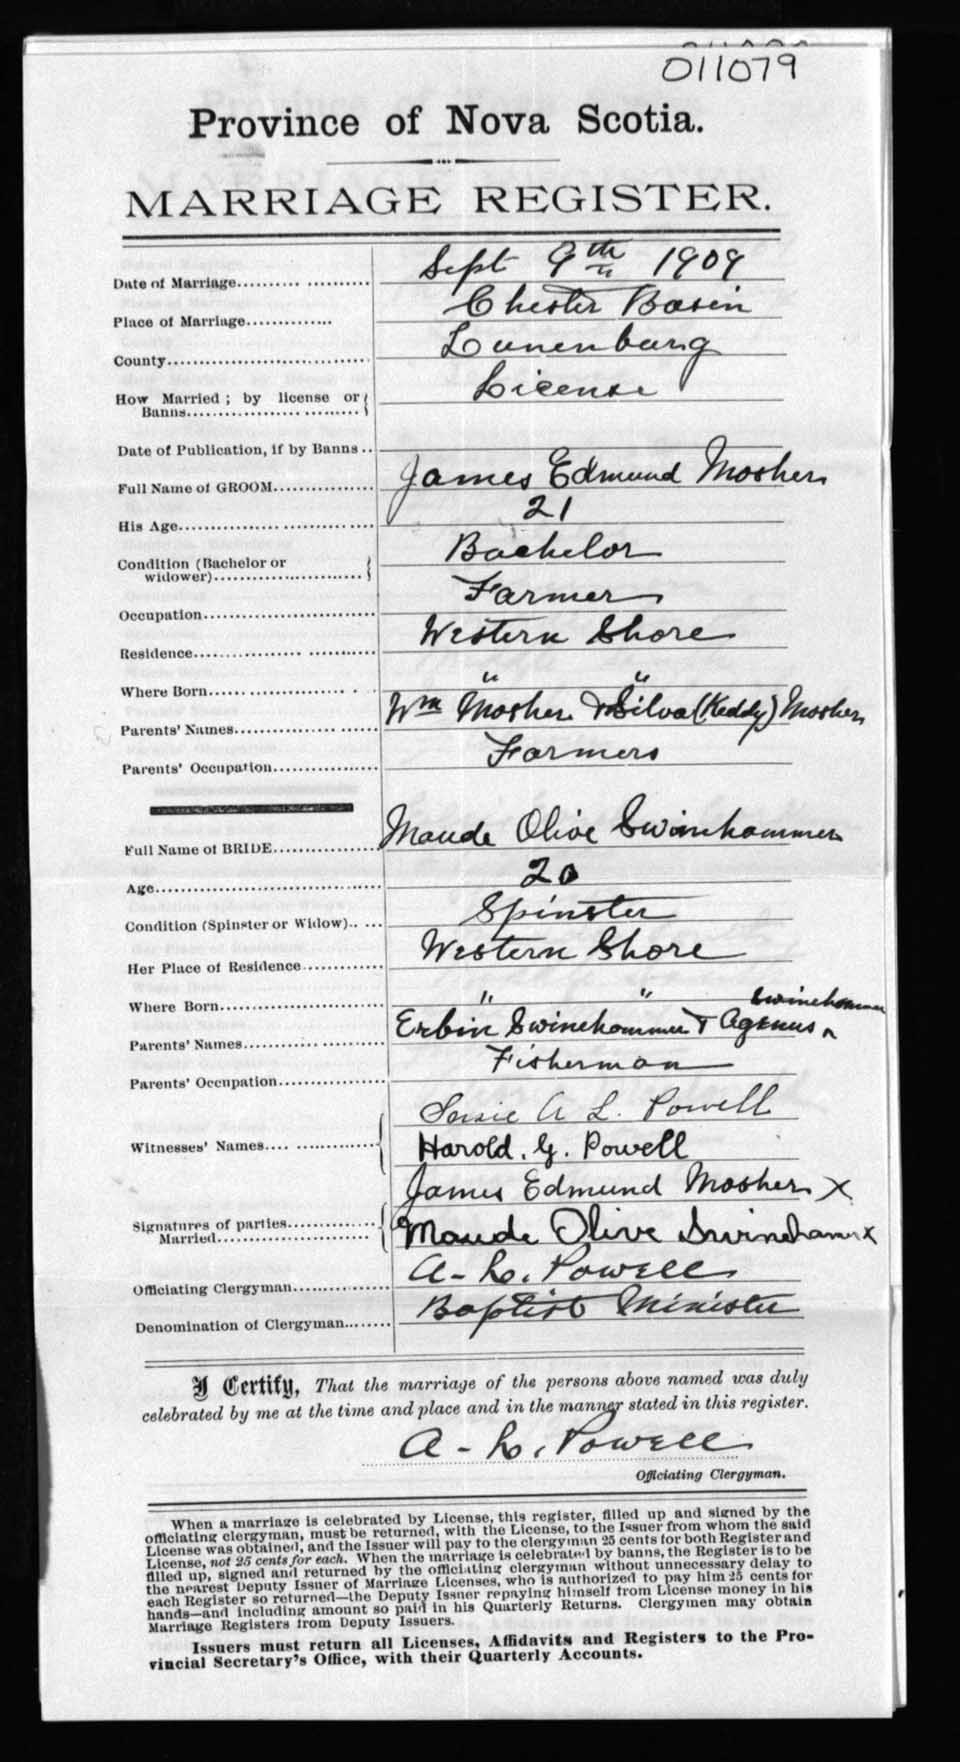 011079
Province of Nova Scotia.
MARRIAGE REGISTER.
Date of Marriage.................... Sept 9th 1909
Place of Marriage............. Chester Basin
County............................... Lunenburg
How Married ; by license or
Banns........................... License
Date of Publication, if by Banns ..
Full Name of GROOM............... James Edmund Mosher
His Age............................. 21
Condition (Bachelor or
widower)......................... Bachelor
Occupation.......................... Farmer
Residence........................... Western Shore
Where Born...................... " "
Parents' Names..................... Wm Mosher & Silva (Keddy) Mosher
Parents' Occupation................ Farmers
Full Name of BRIDE................ Maude Olive Swinehammer
Age................................. 20
Condition (Spinster or Widow)..... Spinster
Her Place of Residence............ Western Shore
Where Born........................ " " Swinehammer
Parents' Names.................... Erbin Swinehammer & Agenus ^
Parents' Occupation............... Fisherman
A L. Powell
Witnesses' Names.... ............ Harold. G. Powell
James Edmund Mosher X
Signatures of parties..............
Married........................ Maude Olive Swinehamer X
Officiating Clergyman.............. A - L. Powell
Denomination of Clergyman........ Baptist Minister
I Certify, That the marriage of the persons above named was duly
celebrated by me at the time and place and in the manner stated in this register.
A - L. Powell
Officiating Clergyman.
When a marriage is celebrated by License, this register, filled up and signed by the
officiating clergyman, must be returned, with the License, to the Issuer from whom the said
License was obtained, and the Issuer will pay to the clergyman 25 cents for both Register and
License, not 25 cents for each. When the marriage is celebrated by banns, the Register is to be
filled up, signed and returned by the officiating clergyman without unnecessary delay to
the nearest Deputy Issuer of Marriage Licenses, who is authorized to pay him 25 cents for
each Register so returned—the Deputy Issuer repaying himself from License money in his
hands—and including amount so paid in his Quarterly Returns. Clergymen may obtain
Marriage Registers from Deputy Issuers.
Issuers must return all Licenses, Affidavits and Registers to the Pro-
vincial Secretary's Office, with their Quarterly Accounts.